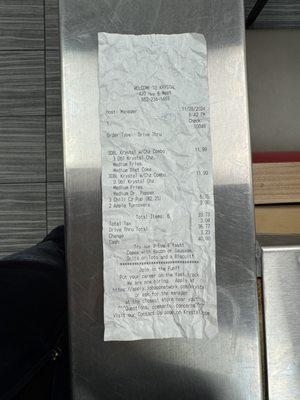 WELCOME TO KRYSTAL
Host: Manager 11/20/2024
6:42 PM
Check:
10046
Order Type: Drive Thru
3DBL Krystal w/Chz Combo 11.99
3 Dbl Krystal Chz
Medium Fries
Medium Diet Coke
3DBL Krystal w/Chz Combo 11.99
3 Dbl Krystal Chz
Medium Fries
Medium Dr. Pepper
3 Chili Cz Pup (@2.25) 6.75
2 Apple Turnovers 3.00
Total Items: 6
33.73
Total Tax 3.04
Drive Thru Total 36.77
Change 3.23
Cash 40.00
Comes with Bacon or Sausage,
Grits or Tots and a Biscuit!
Join in the Fun!!
Put your career on the fast track
We are now hiring. Apply at
or ask for the manager
at the closest store near you!!
Questions, comments, concerns
Visit our Contact Us page on Krystal.com